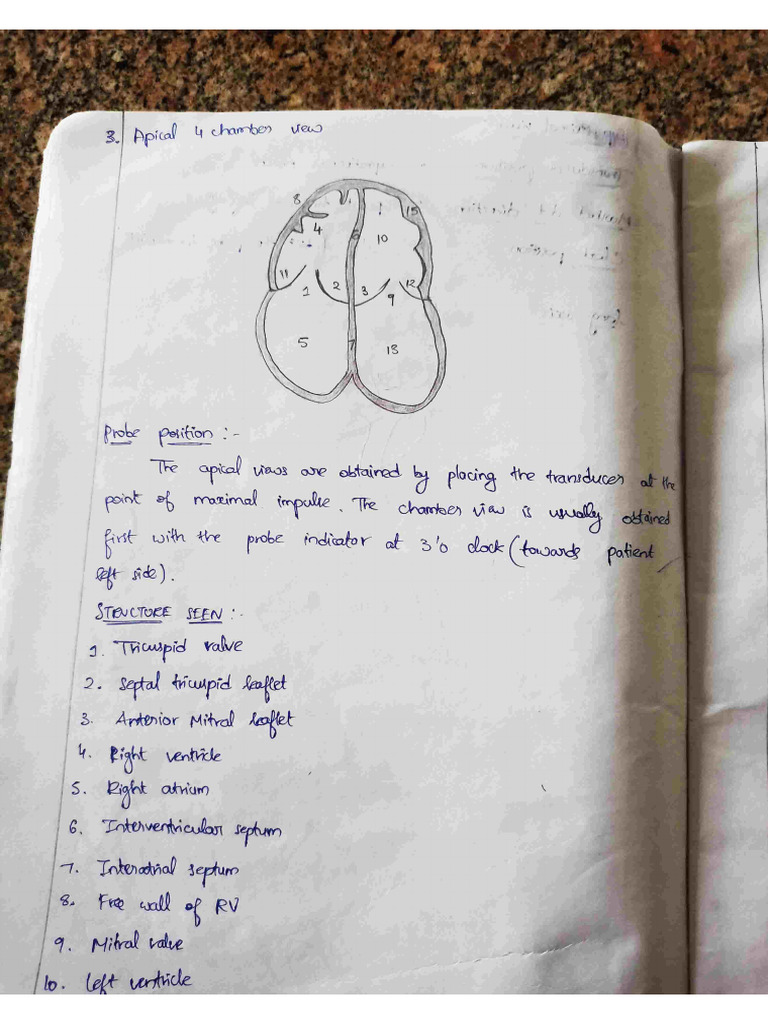 3. Apical 4 chamber view
8 15
4 6 10
11 2 3 12
1 9
5 7 13
Probe position :-
The apical views are obtained by placing the transducer at the
point of maximal impulse. The chamber view is usually obtained
first with the probe indicator at 3'o clock (towards patient
left side).
STRUCTURE SEEN :-
1. Tricuspid valve
2. Septal tricuspid leaflet
3. Anterior Mitral leaflet
4. Right ventricle
5. Right atrium
6. Interventricular septum
7. Interatrial septum
8. Free wall of RV
9. Mitral valve
10. Left ventricle